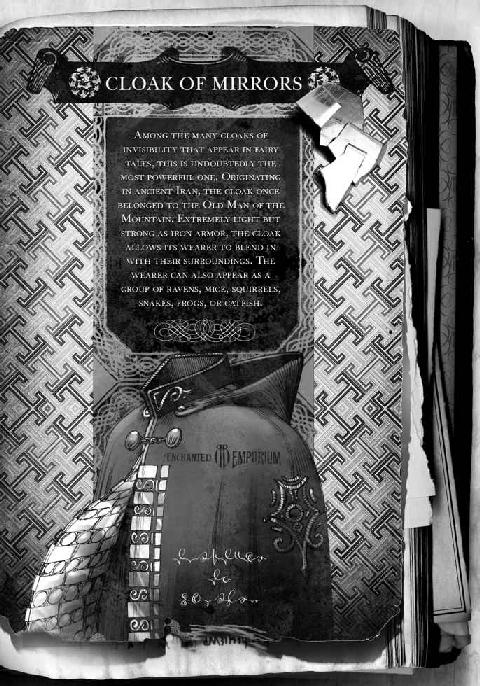 CLOAK OF MIRRORS
AMONG THE MANY CLOAKS OF
INVISIBILITY THAT APPEAR IN FAIRY
TALES, THIS IS UNDOUBTEDLY THE
MOST POWERFUL ONE. ORIGINATING
IN ANCIENT IRAN, THE CLOAK ONCE
BELONGED TO THE OLD MAN OF THE
MOUNTAIN. EXTREMELY LIGHT BUT
STRONG AS IRON ARMOR, THE CLOAK
ALLOWS ITS WEARER TO BLEND IN
WITH THEIR SURROUNDINGS. THE
WEARER CAN ALSO APPEAR AS A
GROUP OF RAVENS, MICE, SQUIRRELS,
SNAKES, FROGS, OR CATFISH.
ENCHANTED EMPORIUM